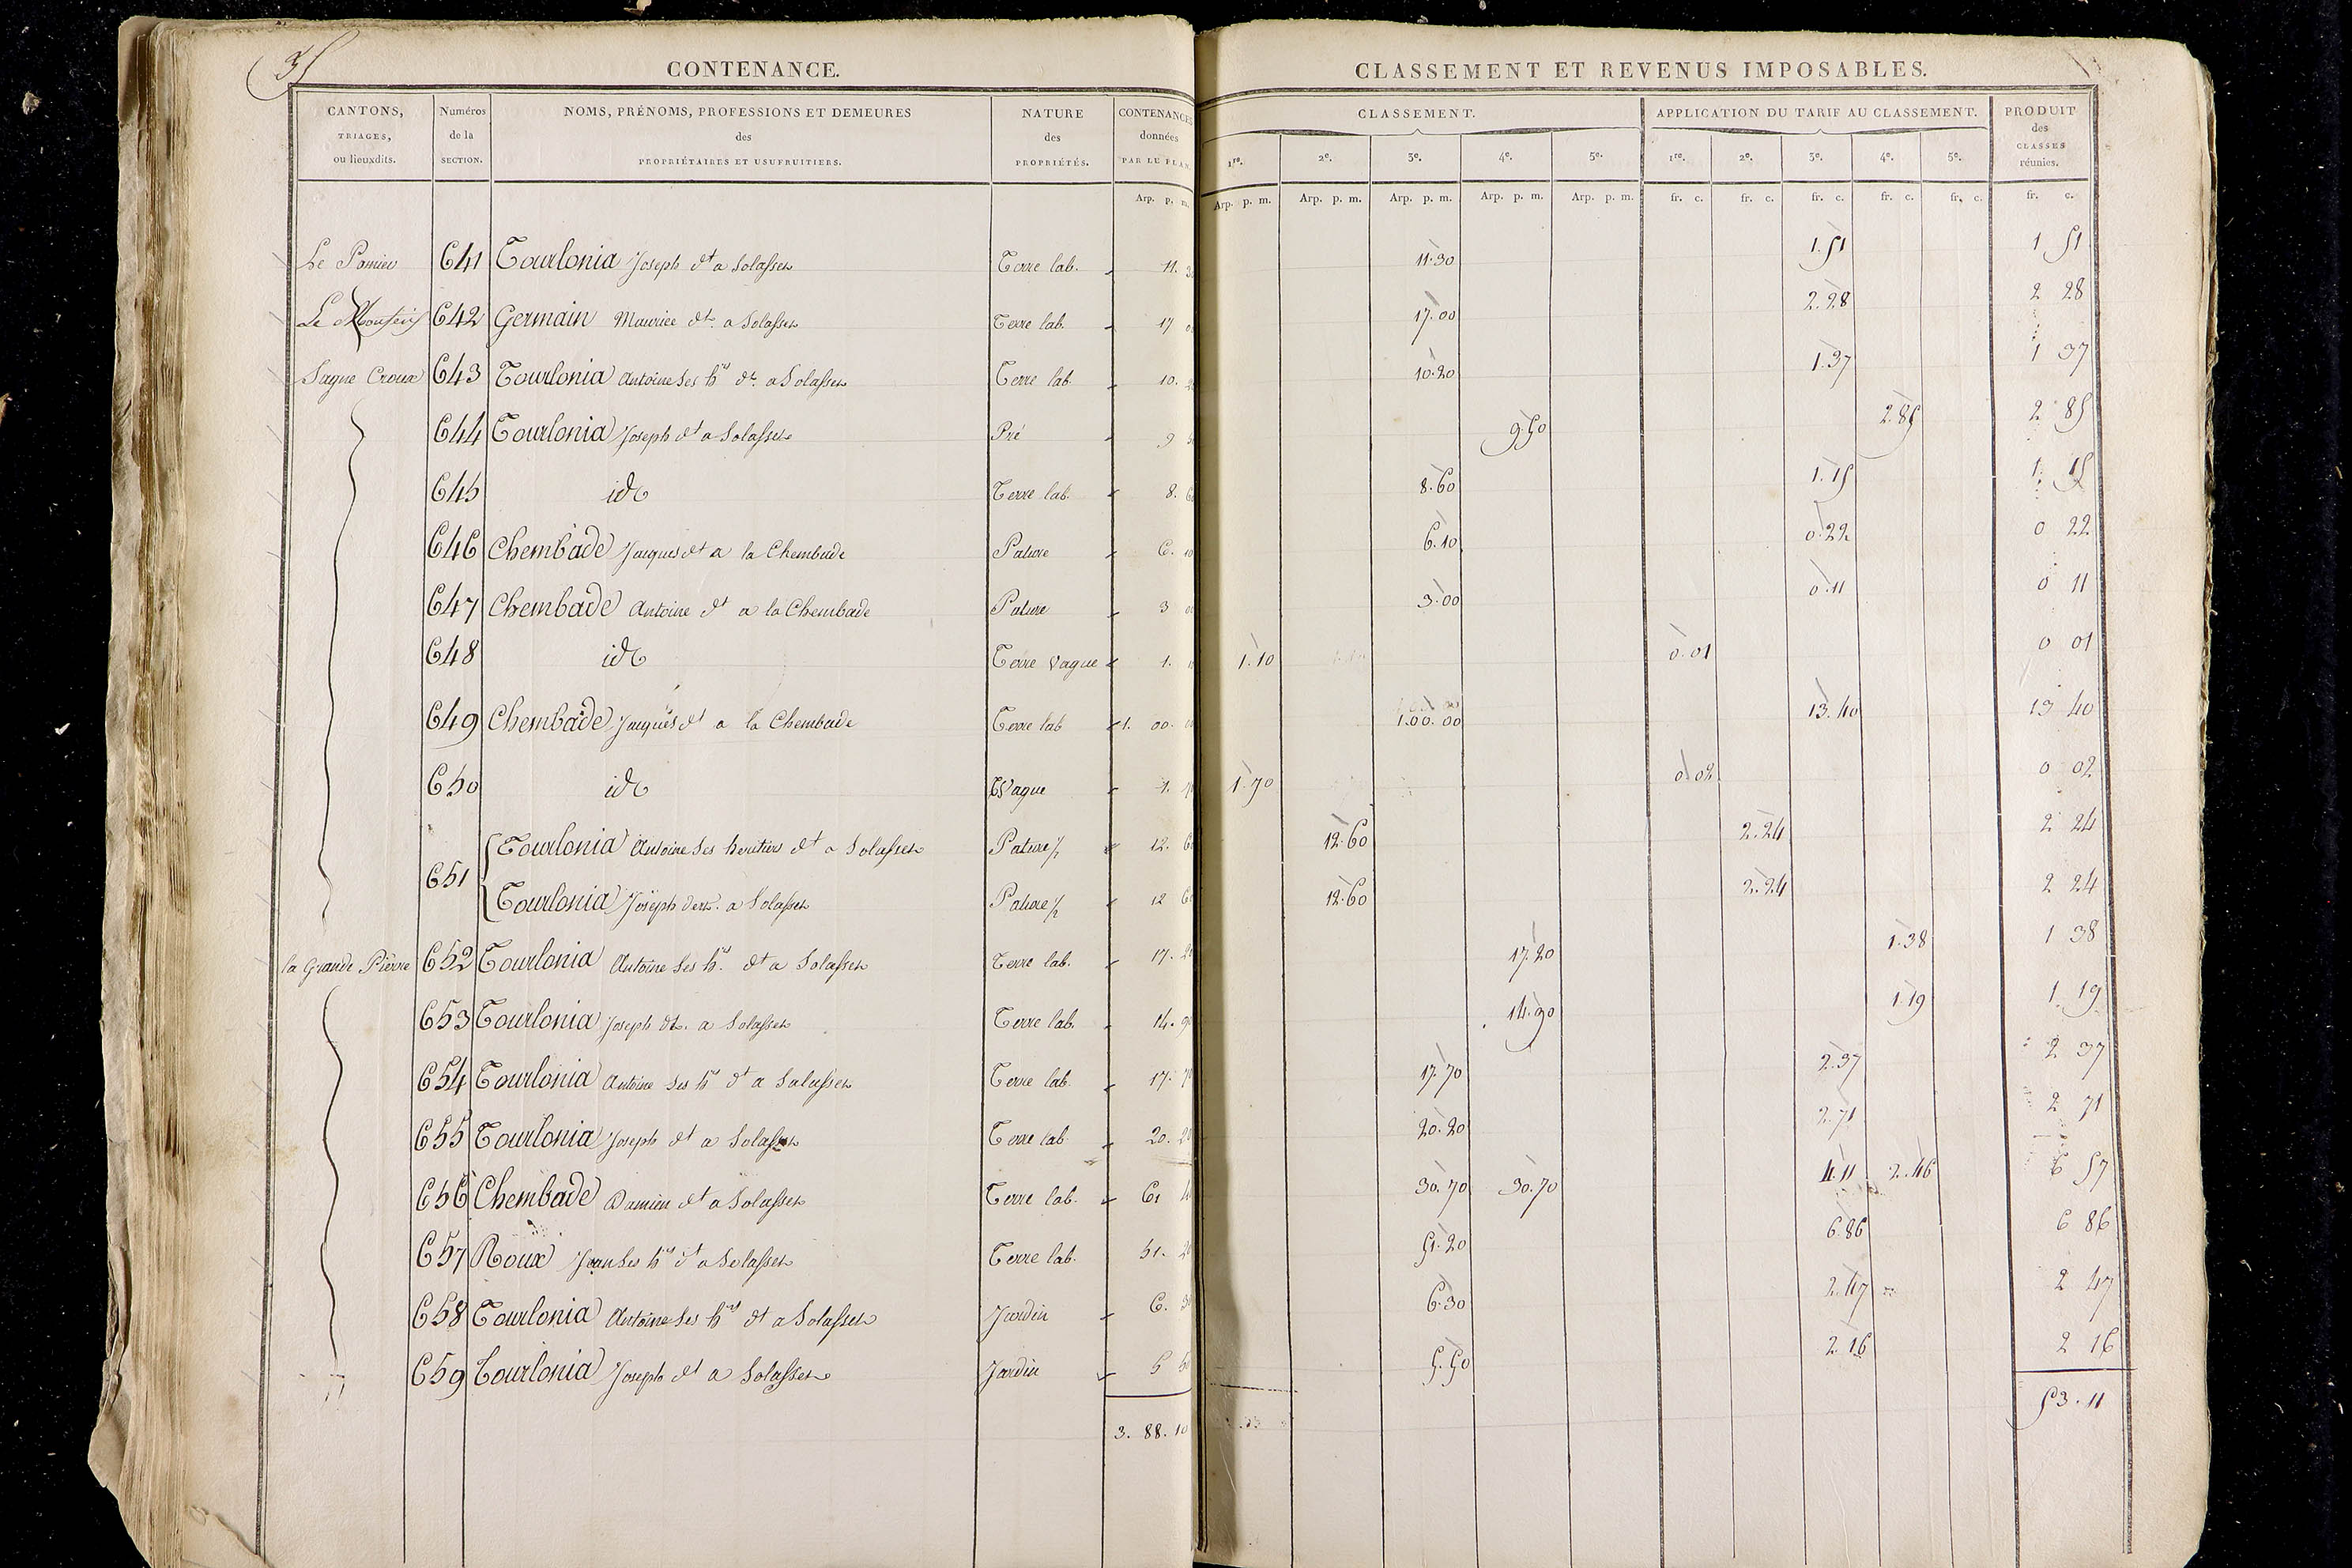 35
CONTENANCE.
CANTONS, TRIAGES, ou lieuxdits.
Numéros de la SECTION.
NOMS, PRÉNOMS, PROFESSIONS ET DEMEURES des PROPRIÉTAIRES ET USUFRUITIERS.
NATURE des PROPRIÉTÉS.
CONTENANCES données PAR LE PLAN
Arp. p. m.
CLASSEMENT ET REVENUS IMPOSABLES.
CLASSEMENT.
APPLICATION DU TARIF AU CLASSEMENT.
PRODUIT des CLASSES réunies.
1re. 2e. 3e. 4e. 5e. 1re. 2e. 3e. 4e. 5e.
Arp. p. m. Arp. p. m. Arp. p. m. Arp. p. m. Arp. p. m. fr. c. fr. c. fr. c. fr. c. fr. c. fr. c.
Le 641 Tourlonia Joseph dt a Solasses Terre lab. 11. 30 11.30 1.51 1 51
Le 642 Germain Maurice dt. a Solasses Terre lab. 17 00 17.00 2.28 2 28
Sagne Croux 643 Tourlonia Antoine Ses hrs dt. a Solasses Terre lab 10. 20 10.20 1.37 1 37
644 Tourlonia Joseph dt a Solasses Pré 9 50 9.50 2.85 2 85
645 id Terre lab. 8. 60 8.60 1.15 1 15
646 Chembade Jacques dt a la Chembade Pature 6. 10 6.10 0.22 0 22
647 Chembade Antoine dt a la Chembade Pature 3 00 3.00 0.11 0 11
648 id Terre vague 1. 10 1.10 0.01 0 01
649 Chembade Jacques dt a la Chembade Terre lab 1. 00. 00 1.00.00 13.40 13 40
650 id Vague 1. 70 1.70 0.02 0 02
651 Tourlonia Antoine Ses heritiers dt a Solasses Pature 1/2 12. 60 12.60 2.24 2 24
Tourlonia Joseph dt. a Solasses Pature 1/2 12 60 12.60 2.24 2 24
la Grande Pierre 652 Tourlonia Antoine Ses hrs. dt a Solasses Terre lab. 17. 20 17.20 1.38 1 38
653 Tourlonia Joseph dt. a Solasses Terre lab. 14. 90 14.90 1.19 1 19
654 Tourlonia Antoine Ses hrs dt a Solasses Terre lab. 17. 70 17.70 2.37 2 37
655 Tourlonia Joseph dt a Solasses Terre lab 20. 20 20.20 2.71 2 71
656 Chembade Damien dt a Solasses Terre lab. 61 40 30.70 30.70 4.11 2.46 6 57
657 Roux Jean Ses hrs dt a Solasses Terre lab. 51. 20 51.20 6.86 6 86
658 Tourlonia Antoine Ses hrs dt a Solasses Jardin 6. 30 6.30 2.47 2 47
659 Tourlonia Joseph dt a Solasses Jardin 5 50 5.50 2.16 2 16
3. 88. 10 53.11